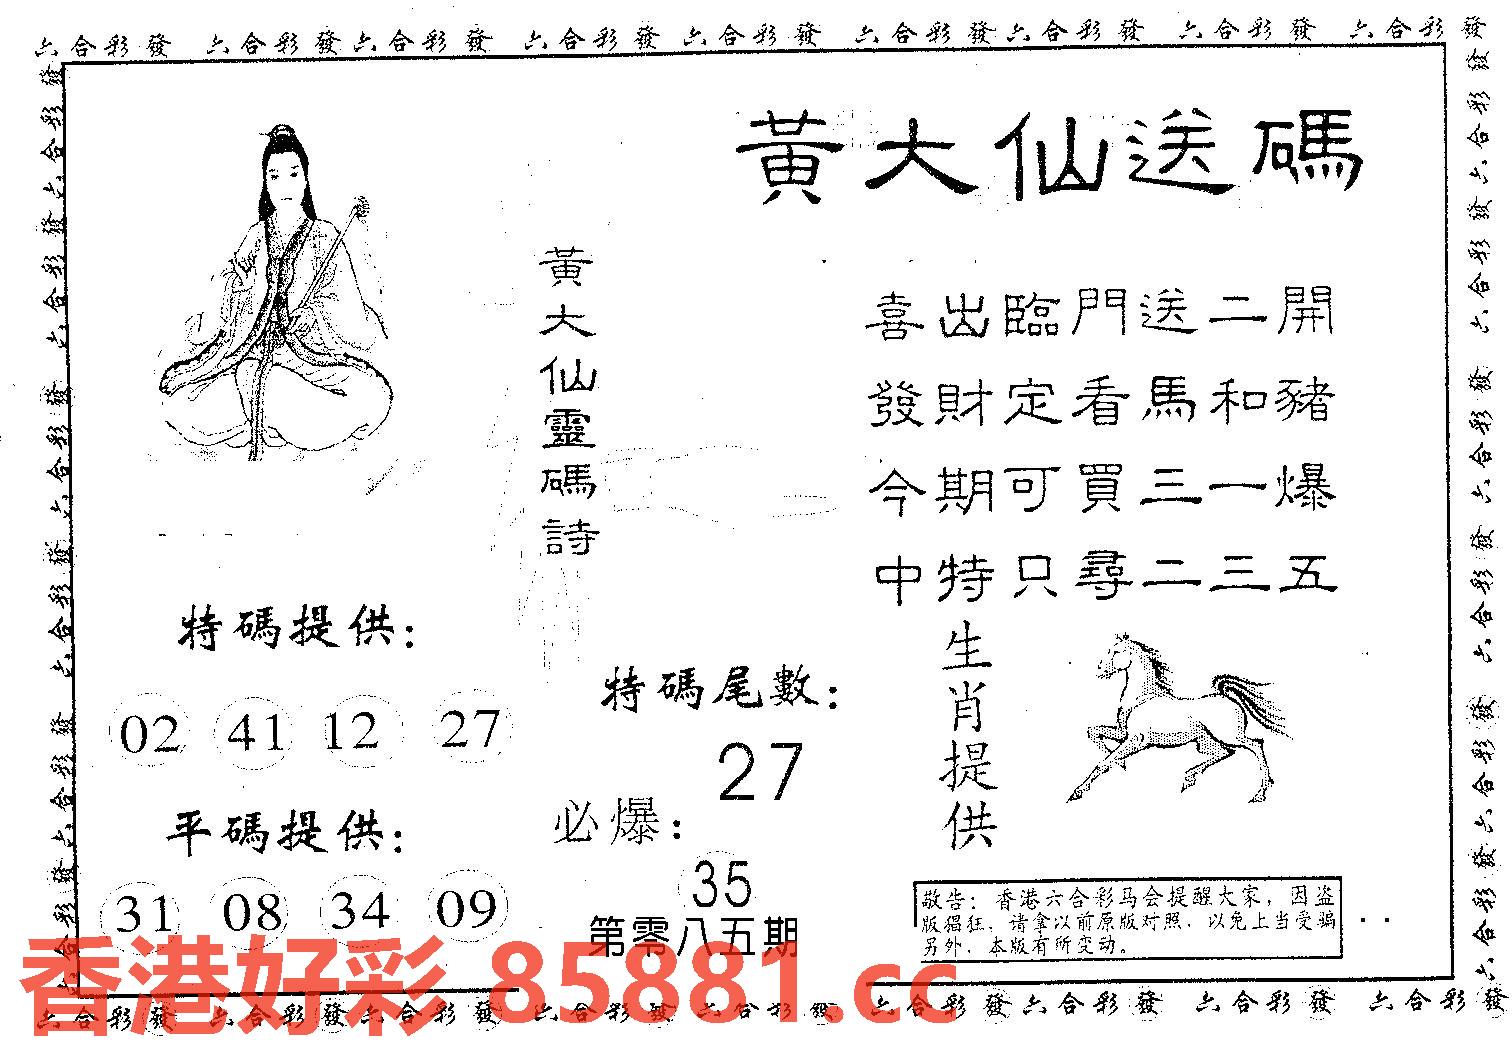 六合彩發 六合彩發六合彩發 六合彩發 六合彩發 六合彩發六合彩發 六合彩發 六合彩發
黃大仙送碼
黃大仙靈碼詩
喜出臨門送二開
發財定看馬和豬
今期可買三一爆
中特只尋二三五
特碼提供：
02 41 12 27
平碼提供：
31 08 34 09
特碼尾數：
27
必爆：
35
第零八五期
生肖提供
敬告：香港六合彩马会提醒大家，因盗
版猖狂，请拿以前原版对照，以免上当受骗
另外，本版有所变动。
香港好彩 85881.cc
六合彩發 六合彩發六合彩發 六合彩發 六合彩發 六合彩發六合彩發 六合彩發 六合彩發